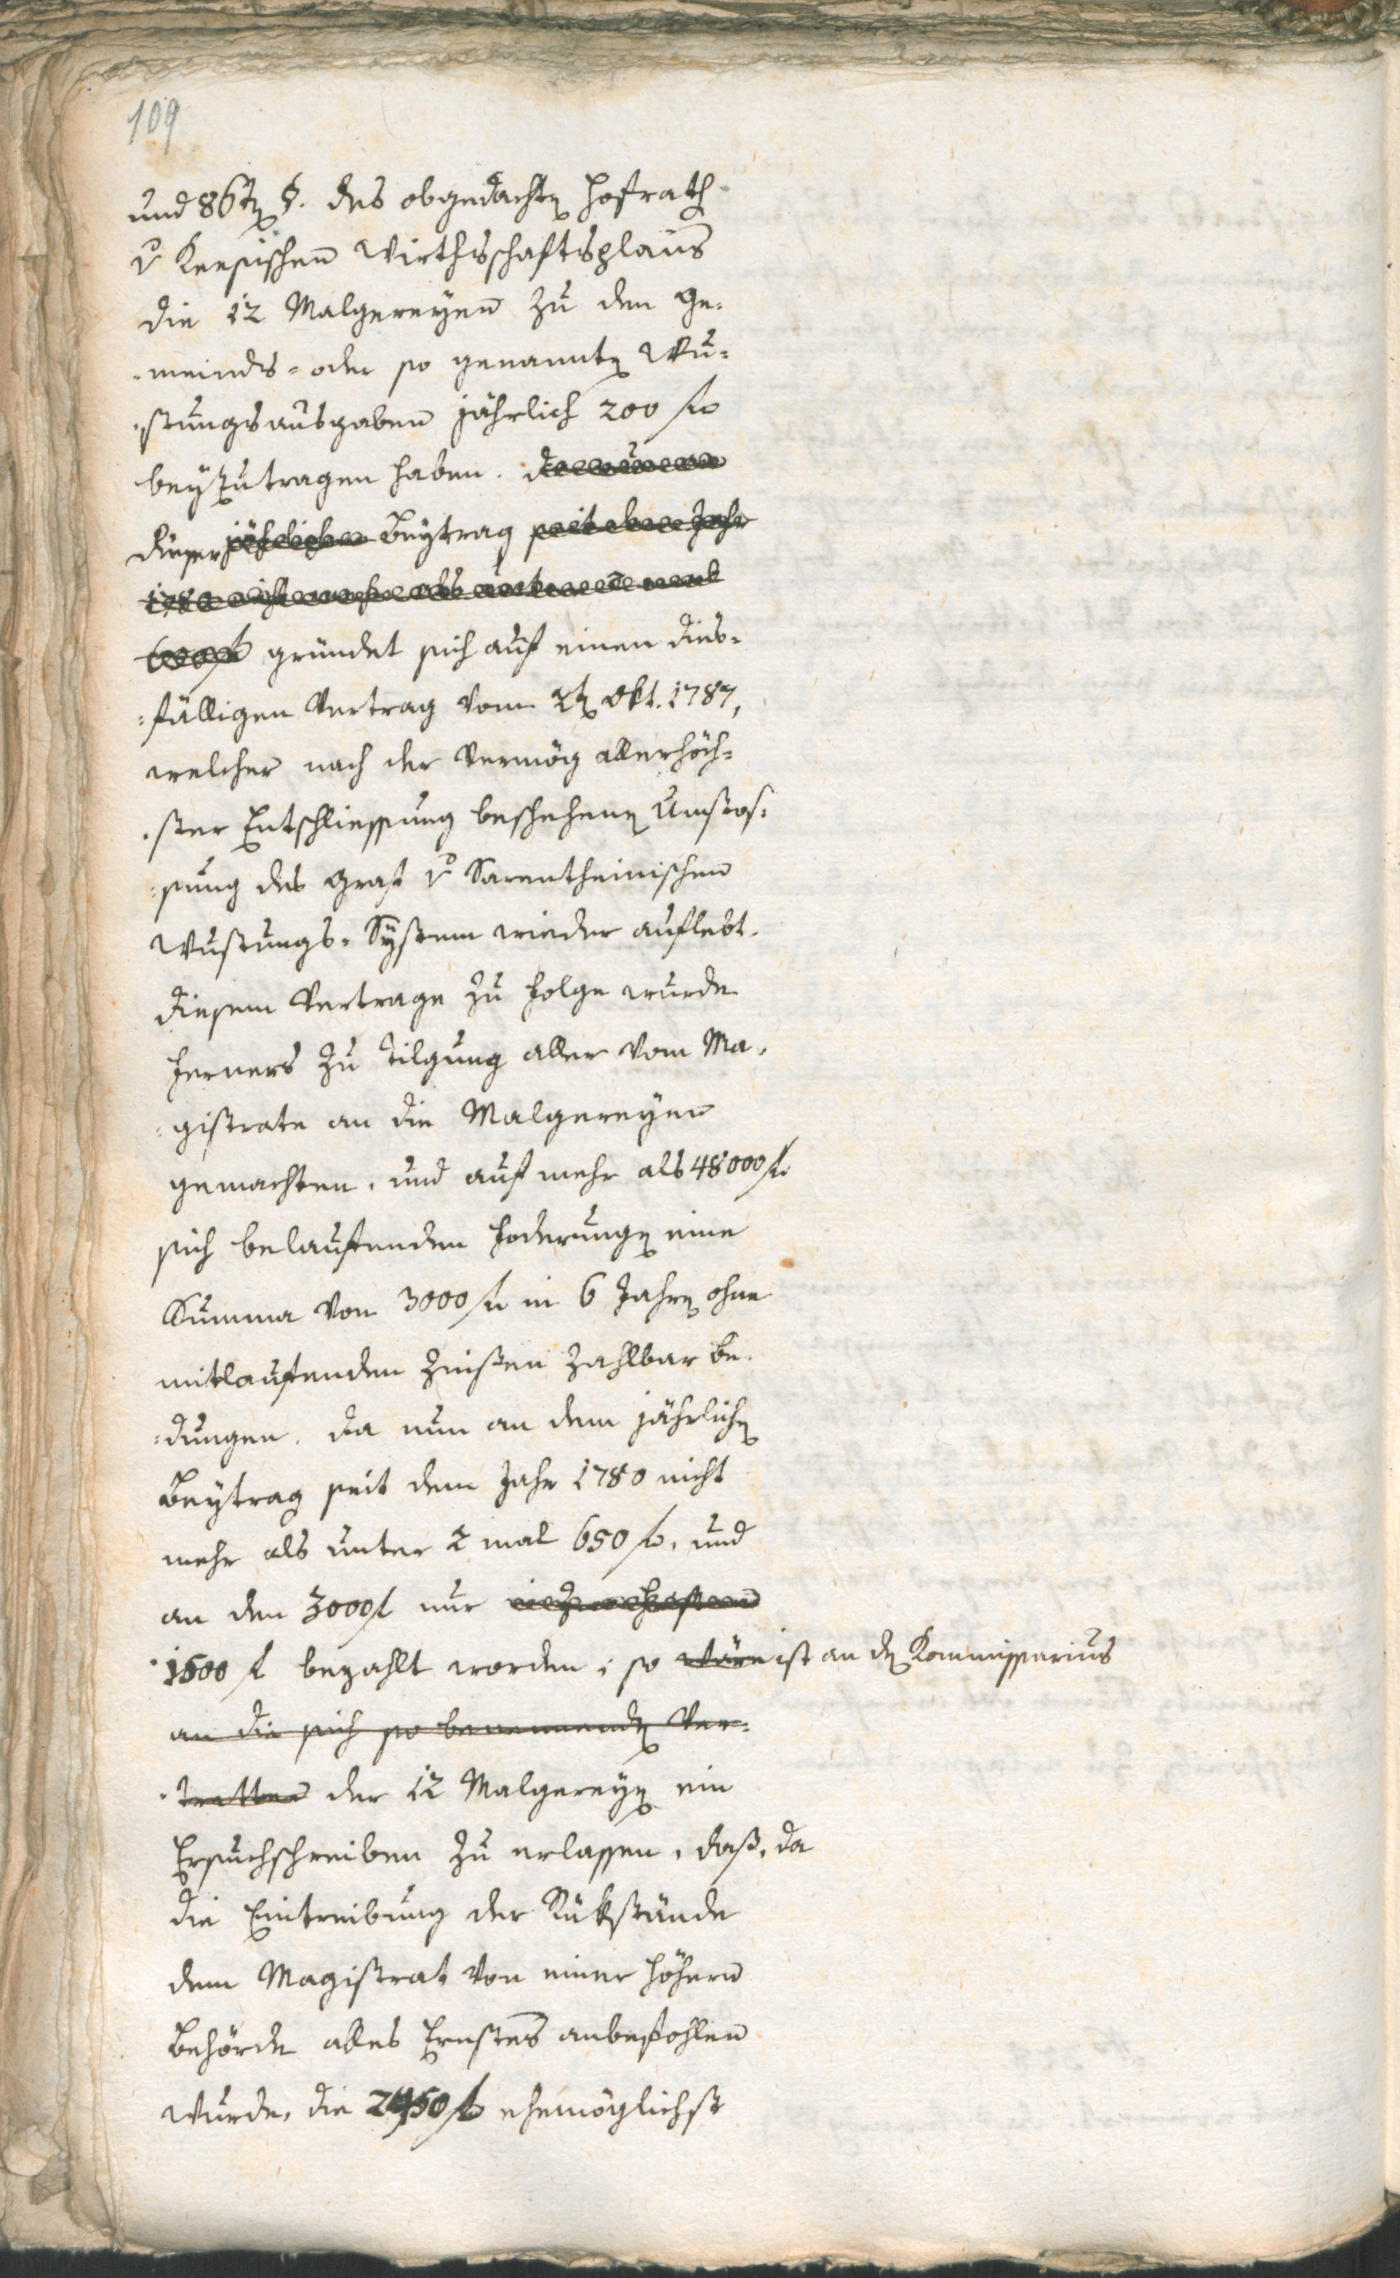 109
und 86tn §. des obgedachtn Hofrath
v Keepischen Wirthschaftsplans
die 12 Malgereyen zu den Ge-
-meinds- oder so genanntn Wu-
-stungsausgaben jährlich 200 fl
beyzutragen haben.
dieser jährlicher Beytrag seit dem Jahr
1780 nicht mehr als unter
600 fl gründet sich auf einen dies-
-fälligen Vertrag vom 2tn Okt. 1787,
welcher nach der Vermög allerhöch-
-ster Entschliessung beschehenen Umstos-
-sung des Graf v Sarentheinischen
Wustungs-System wieder auflebt.
Diesem Vertrage zu Folge wurde
ferners zu Tilgung aller vom Ma-
-gistrate an die Malgereyen
gemachten, und auf mehr als 48000 fl
sich belaufenden Foderungn eine
Summa von 3000 fl in 6 Jahrn ohne
mitlaufenden Zinsen zahlbar be-
-dungen. Da nun an dem jährlichn
Beytrag seit dem Jahr 1780 nicht
mehr als unter 2 mal 650 fl, und
an den 3000 fl nur
1500 fl bezahlt worden; so wäre ist an dn Kommissarius
an die sich so benennendn Ver-
-tretter der 12 Malgereyn ein
Ersuchschreiben zu erlassen, daß, da
die Eintreibung der Rükstände
dem Magistrat von einer höhern
Behörde alles Ernstes anbefohlen
wurde, die 2450 fl ehemöglichst